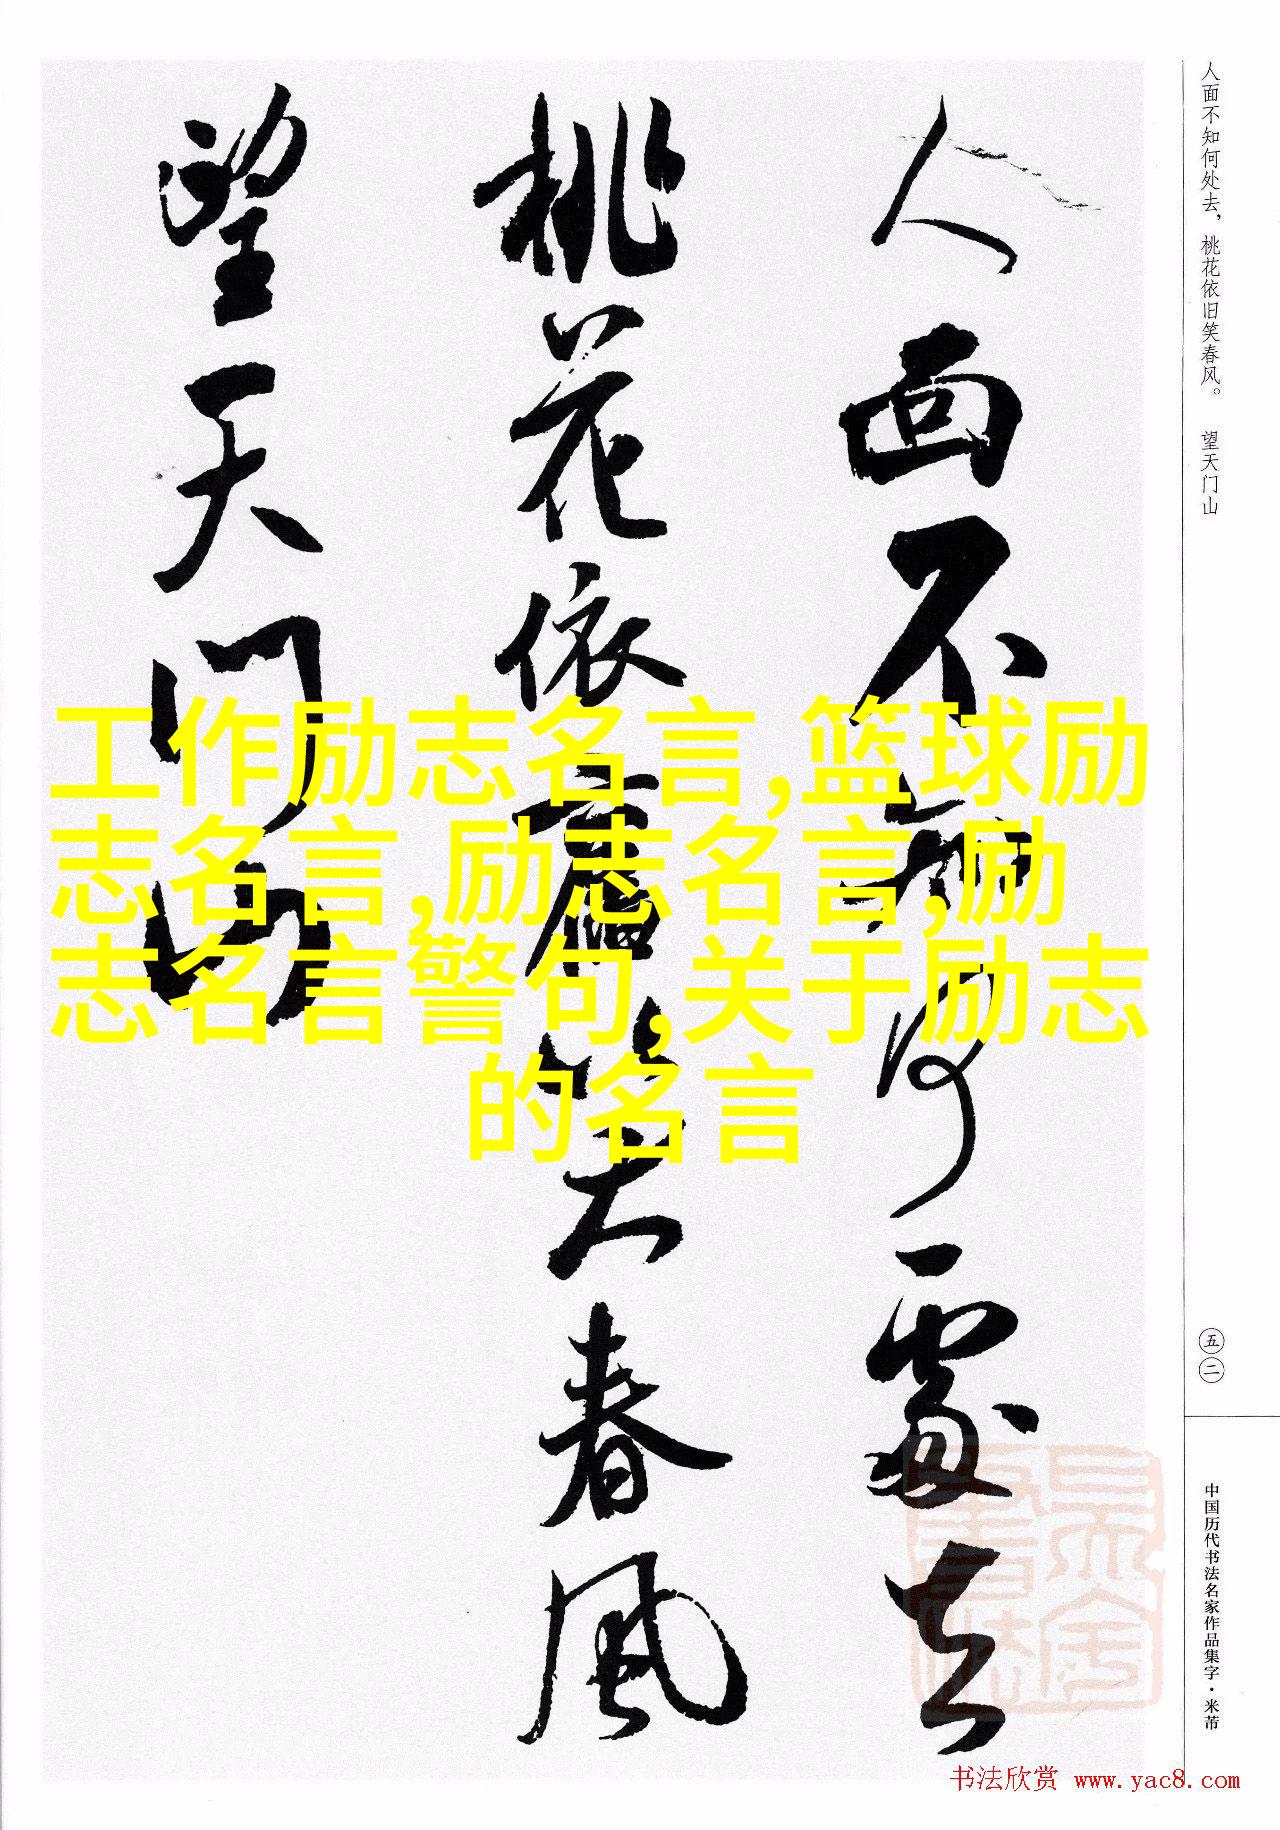 人面不知何處去
桃花依舊笑春風
望天門山
人面不知何处去，桃花依旧笑春风。 望天门山
五二
中国历代书法名家作品集字·米芾
工作励志名言,篮球励
志名言,励志名言,励
志名言警句,关于励志
的名言
书法欣赏 www.yac8.com